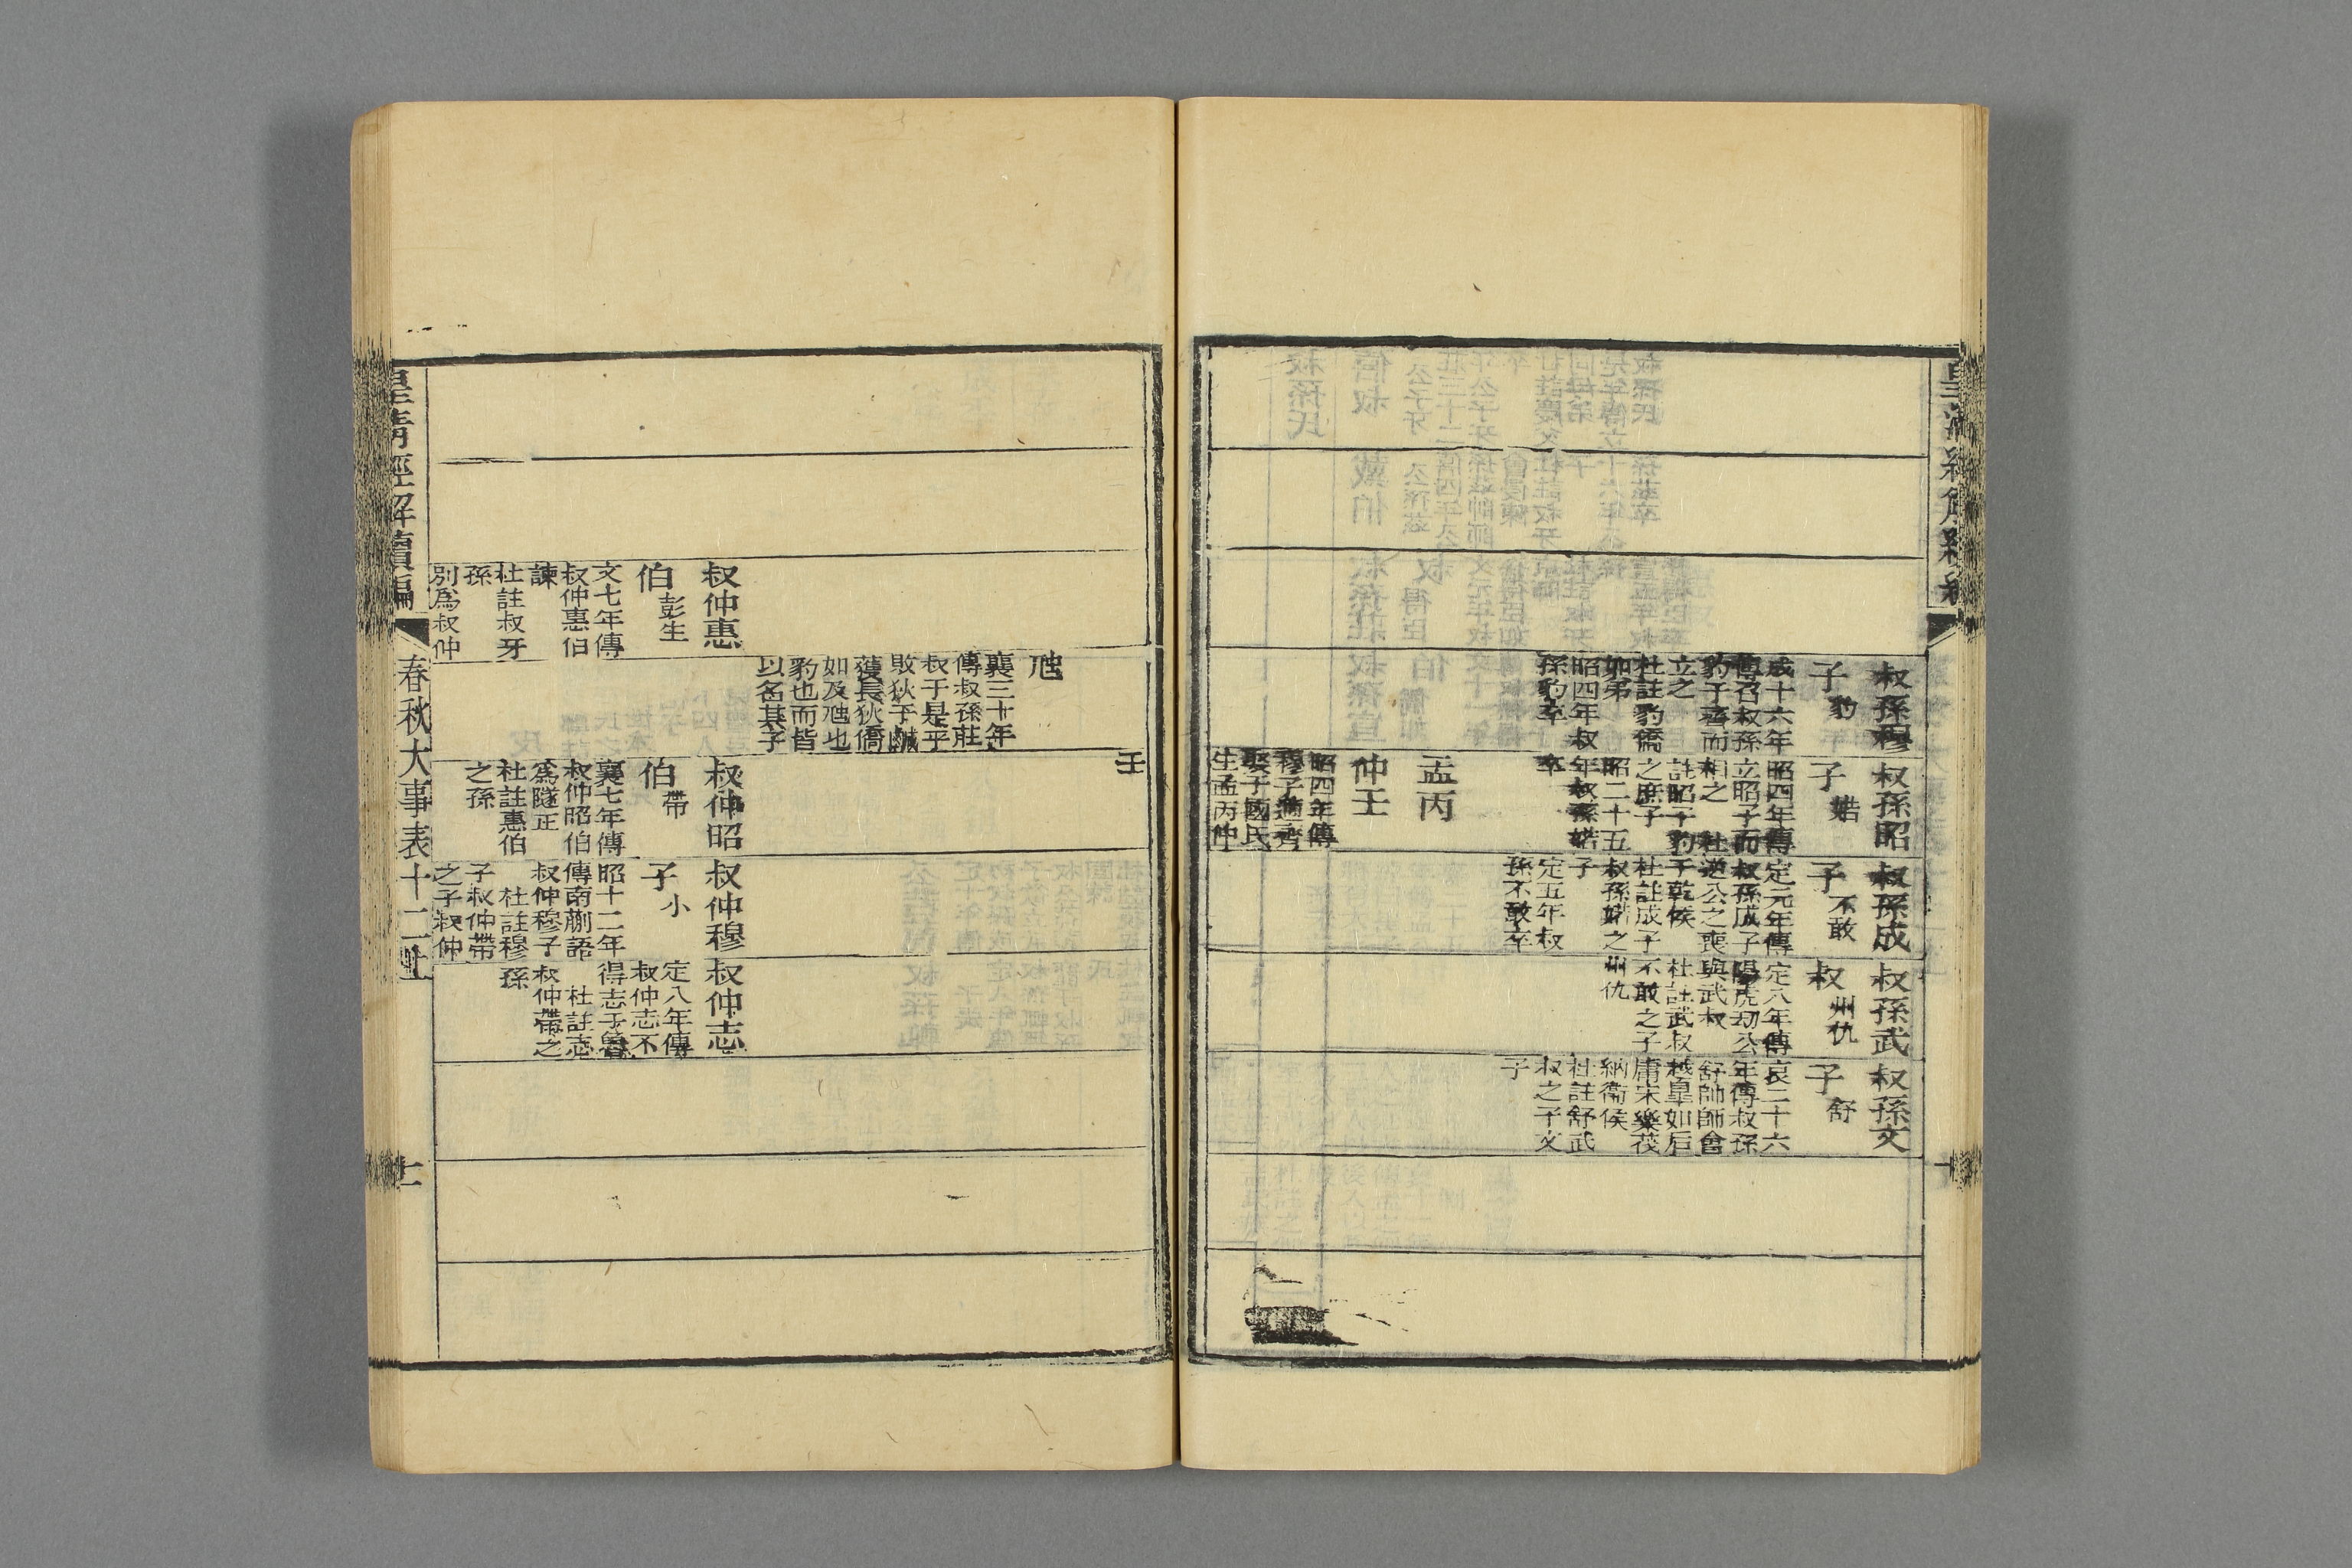 叔孫穆
子豹
成十六年
傳召叔孫
豹于齊而
立之
杜註豹僑
如弟
昭四年叔
孫豹卒
叔孫昭
子婼
昭四年傳
立昭子而
相之 杜
註昭子豹
之庶子
昭二十五
年叔孫婼
卒
孟丙
仲壬
昭四年傳
穆子適齊
娶于國氏
生孟丙仲
叔孫成
子不敢
定元年傳
叔孫成子
逆公之喪
于乾侯
杜註成子
叔孫婼之
子
定五年叔
孫不敢卒
叔孫武
叔州仇
定八年傳
陽虎劫公
與武叔
杜註武叔
不敢之子
州仇
叔孫文
子舒
哀二十六
年傳叔孫
舒帥師會
越皐如后
庸宋樂茷
納衞侯
杜註舒武
叔之子文
子
叔仲惠
伯彭生
文七年傳
叔仲惠伯
諫
杜註叔牙
孫
別爲叔仲
虺
襄三十年
傳叔孫莊
叔于是乎
敗狄于鹹
獲長狄僑
如及虺也
豹也而皆
以名其子
壬
叔仲昭
伯帶
襄七年傳
叔仲昭伯
爲隧正
杜註惠伯
之孫
叔仲穆
子小
昭十二年
傳南蒯語
叔仲穆子
杜註穆
子叔仲帶
之子叔仲
叔仲志
定八年傳
叔仲志不
得志于魯
杜註志
叔仲帶之
孫
皇清經解續編
春秋大事表十二上
十一